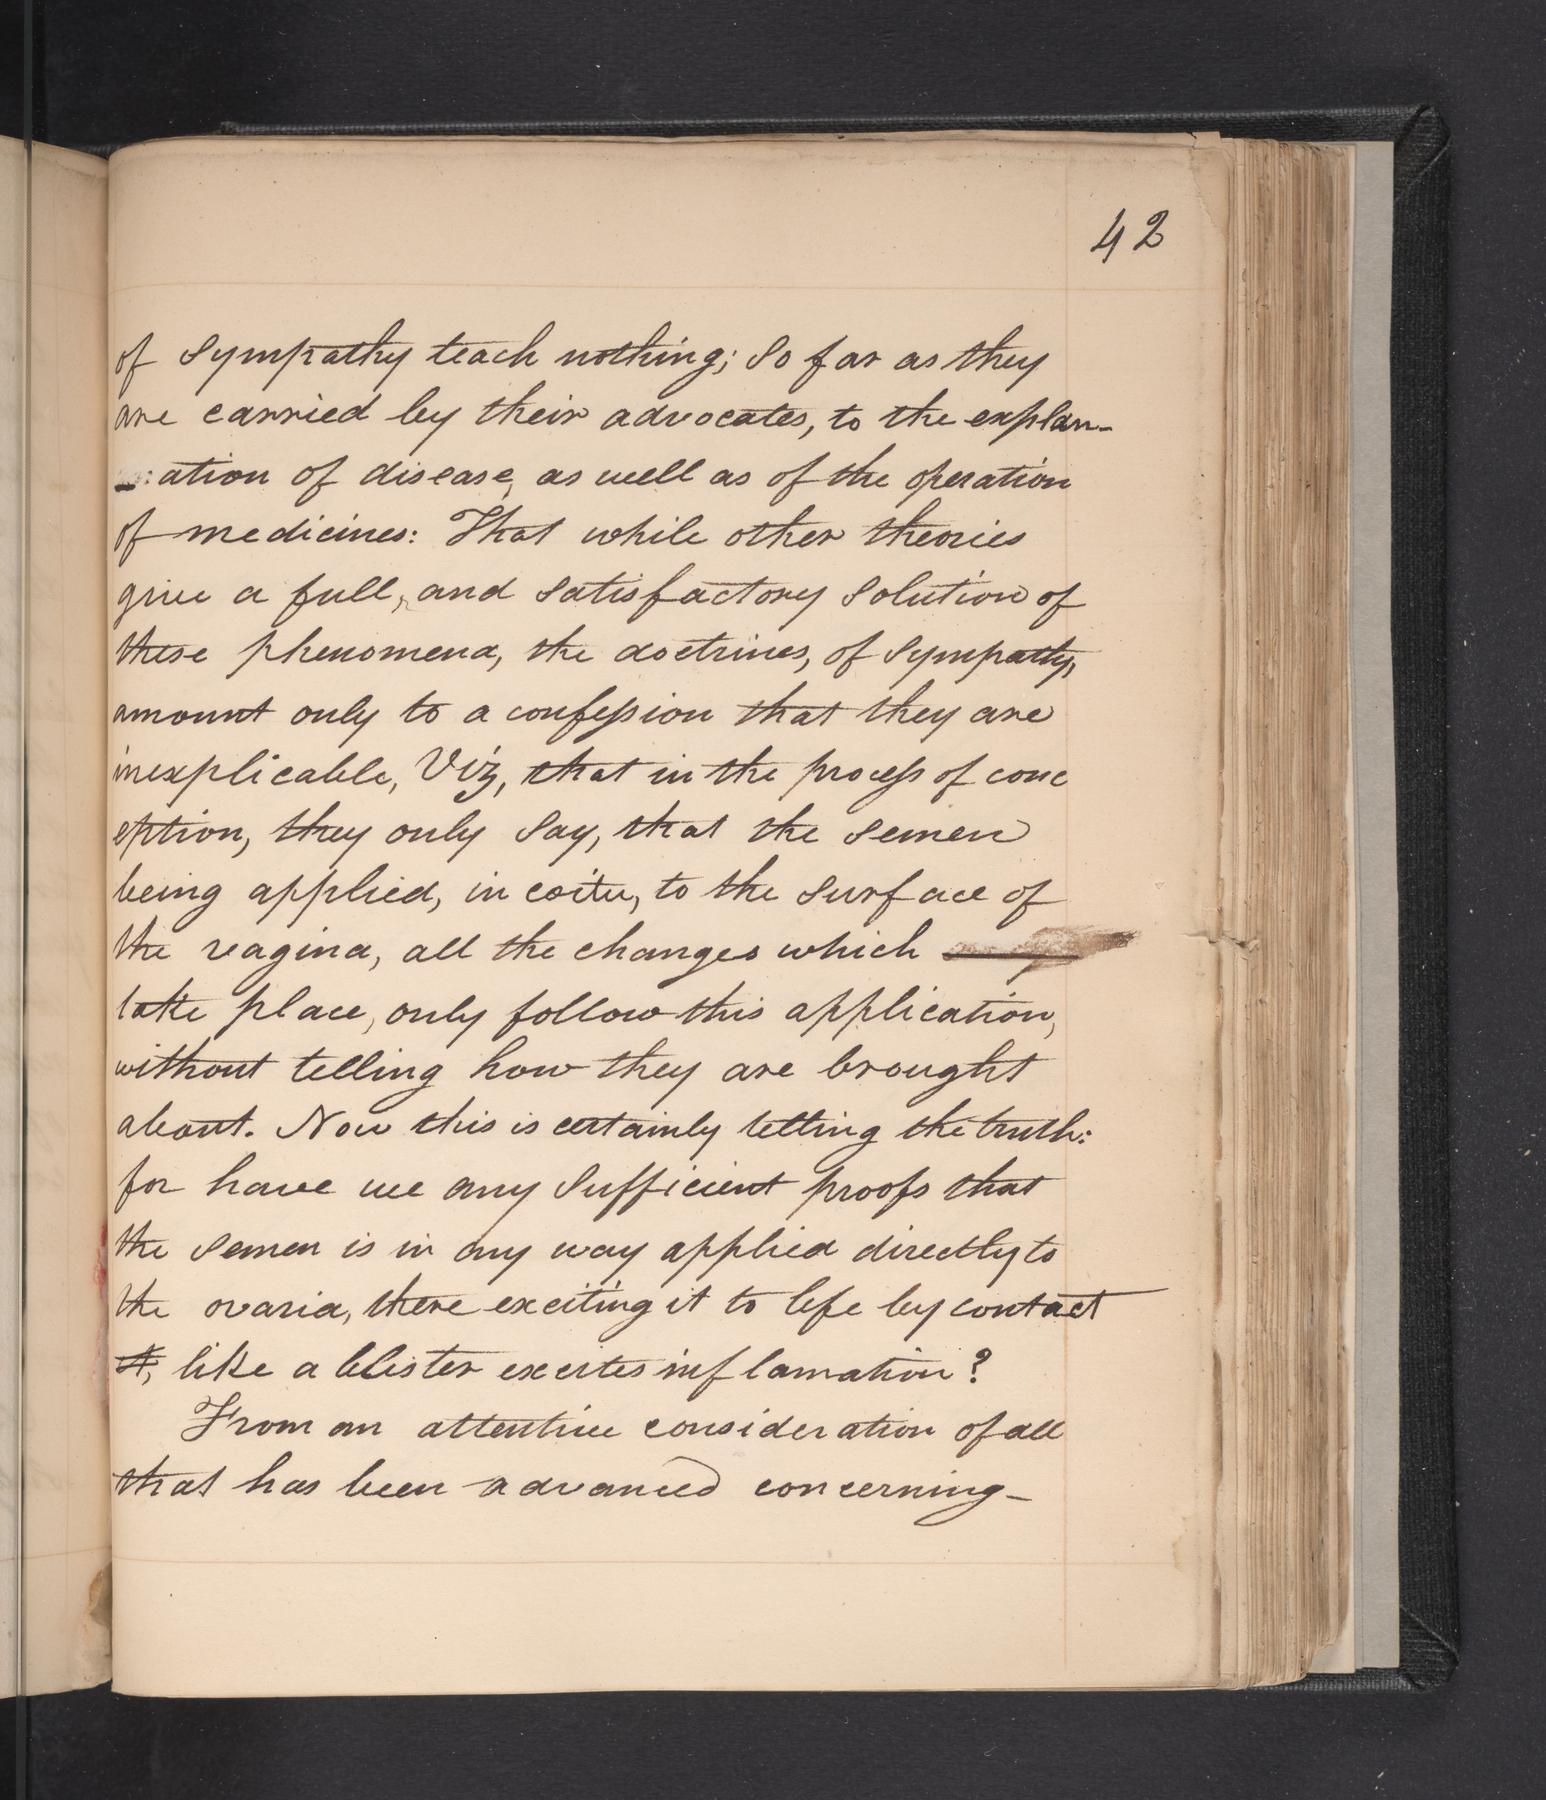 42
of sympathy teach nothing; so far as they
are carried by their advocates, to the explan-
ation of disease, as well as of the operation
of medicines: That while other theories
give a full, and satisfactory solution of
these phenomena, the doctrines, of sympathy,
amount only to a confession that they are
inexplicable, Viz, that in the process of conc
eption, they only say, that the semen
being applied, in coitu, to the surface of
the vagina, all the changes which
take place, only follow this application,
without telling how they are brought
about. Now this is certainly telling the truth:
for have we any sufficient proofs that
the semen is in any way applied directly to
the ovaria, there exciting it to life by contact
like a blister excites inflamation?
From an attentive consideration of all
that has been advanced concerning-